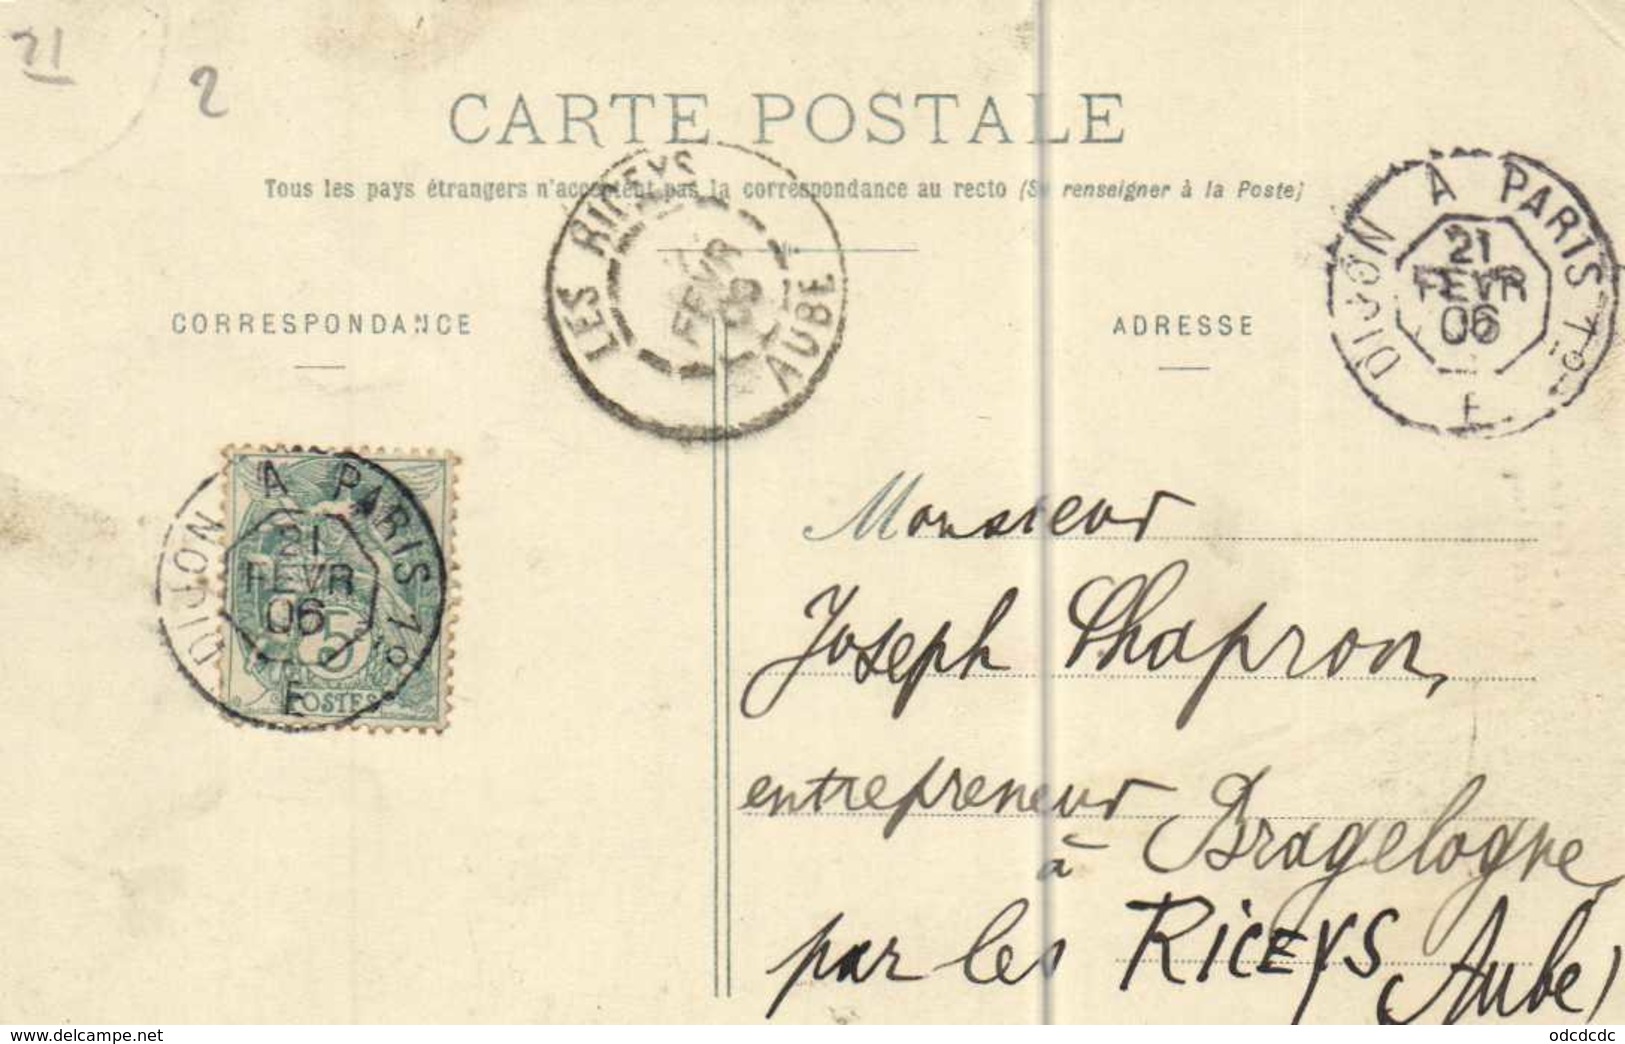 21
2
CARTE POSTALE
Tous les pays étrangers n'acceptent pas la correspondance au recto (Se renseigner à la Poste)
LES RICEYS
FEVR
06
AUBE
DIJON A PARIS 1º
21
FEVR
06
E
CORRESPONDANCE
ADRESSE
DIJON A PARIS 1º
21
FEVR
06
E
5
POSTES
Monsieur
Joseph Chapron,
entrepreneur
à Bragelogne,
par les RICEYS (Aube)
www.delcampe.net
odcdcdc